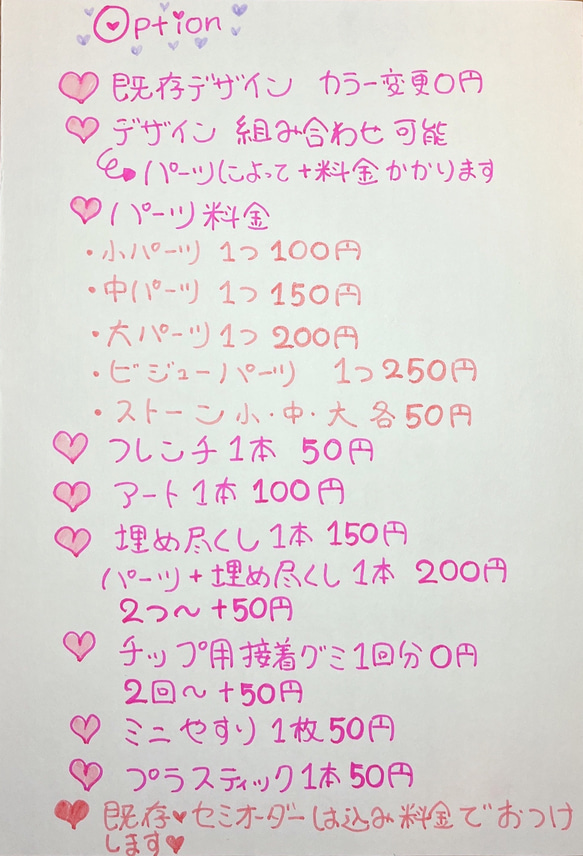 Option
既存デザイン カラー変更0円
デザイン 組み合わせ 可能
パーツによって+料金かかります
パーツ料金
・小パーツ 1つ100円
・中パーツ 1つ150円
・大パーツ1つ200円
・ビジューパーツ 1つ250円
・ストーン小・中・大 各50円
フレンチ1本 50円
アート1本100円
埋め尽くし1本150円
パーツ+埋め尽くし1本 200円
2つ〜+50円
チップ用接着グミ1回分0円
2回〜+50円
ミニやすり1枚50円
プラスティック1本50円
既存♥セミオーダーは込み料金でおつけ
します♥